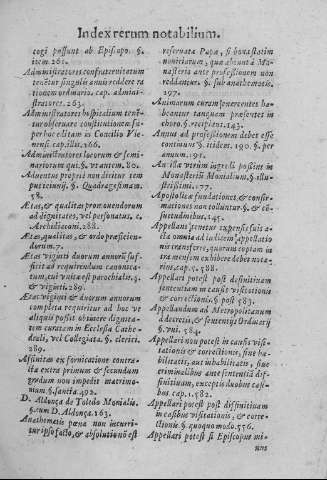 Index rerum notabilium.
cogi possunt ab Episcopo. §.
item 261.
Administratores confraternitatum
tenētur singulis annis reddere ra
tionem ordinario. cap. admini-
stratores. 263.
Administratores hospitalium tenē-
tur observare constitutionē su-
per hoc editam in Concilio Vie-
nensi. cap. illit. 266.
Administratores laicorum & semi-
nariorum qui. §. veniarem. 80.
Adventus proprii non dicitur tem
pus §. Quadragesimam.
58.
Ætas, & qualitas promovendorum
ad dignitates, vel personatus. c.
Archidiaconi. 288.
Ætas, qualitas, & ordo præsicien-
dorum. 7.
Ætas viginti duorum annorū suf-
ficit ad requirendum canonica-
tum, cui vnita est parochialis. §.
& viginti. 289.
Ætas viginti & duorum annorum
completa requiritur ad hoc ve
aliquis possit obtinere dignita-
tem curatam in Ecclesia Cathe-
drali, vel Collegiata. §. clerici.
289.
Affinitas ex fornicatione contra-
cta extra primum & secundum
gradum non impedit matrimo-
nium. §. sancta. 492.
D. Aldonça de Toledo Monialis.
§. cum D. Aldonça. 163.
Anathematis pœna non incurri-
tur ipso facto, & absolutionū est
reservata Papæ, si bona statim
novitiorum, quæ absunt à Mo-
nasteria ante professionem non
reddantur. §. sub anathematis.
197.
Animarum curam exercentes ha-
beantur tanquam presentes in
choro. §. recipitant. 143.
Annus ad professionem debet esse
continuus §. itidem. 190. §. per
annum. 191.
An illa verum ingredi possint in
Monasterii Monialium. §. illu-
strissimi. 177.
Apostolicæ fundationes, & confir-
mationes non tolluntur. §. & cō-
suetudinibus. 145.
Appellans tenetur expensis suis a-
cta omnia ad iudicem appellatio
nis transferre, quorum copiam in
tra mensem exhibere debet nota-
rius, cap. 5. 588.
Appellari potest post definitivam
sententiam in causis visitationis
& correctionis. §. post 583.
Appellandum ad Metropolitanum
à decretis, & sententiis Ordinarii
§. vni. 584.
Appellari non potest in causis visi-
tationis & correctionis, sive ha-
bilitatis, aut inhabilitatis, sive
criminalibus ante sententiā dif-
finitivam, exceptis duobus casi-
bus. cap. 1. 582.
Appellari potest post diffinitivam
in casibus visitationis, & corre-
ctionis §. quoquo modo. 576.
Appellari potest si Episcopus mi-
nus